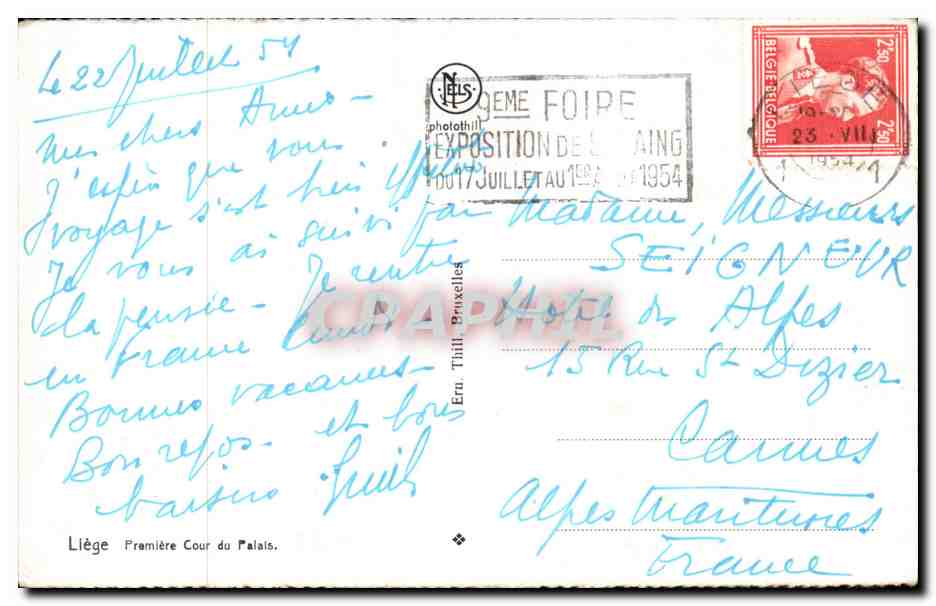 Le 22 Juillet 54
Mes chers Amis -
J'espère que vous
voyage s'est très
Je vous ai suivi par
la pensée - Je rentre
en France Lundi -
Bonnes vacances -
Bon repos - et bons
baisers
NELS
photothill
9EME FOIRE
EXPOSITION DE S AING
DU 17 JUILLET AU 1ER 1954
BELGIE-BELGIQUE
2F50
2F50
23 VII
1954
1 1
Madame, Messieurs
SEIGNEUR
Hotel des Alpes
15 Rue St Dizier
Cannes
Alpes Maritimes
France
Ern. Thill, Bruxelles
CRAPHIL
Liège Première Cour du Palais.